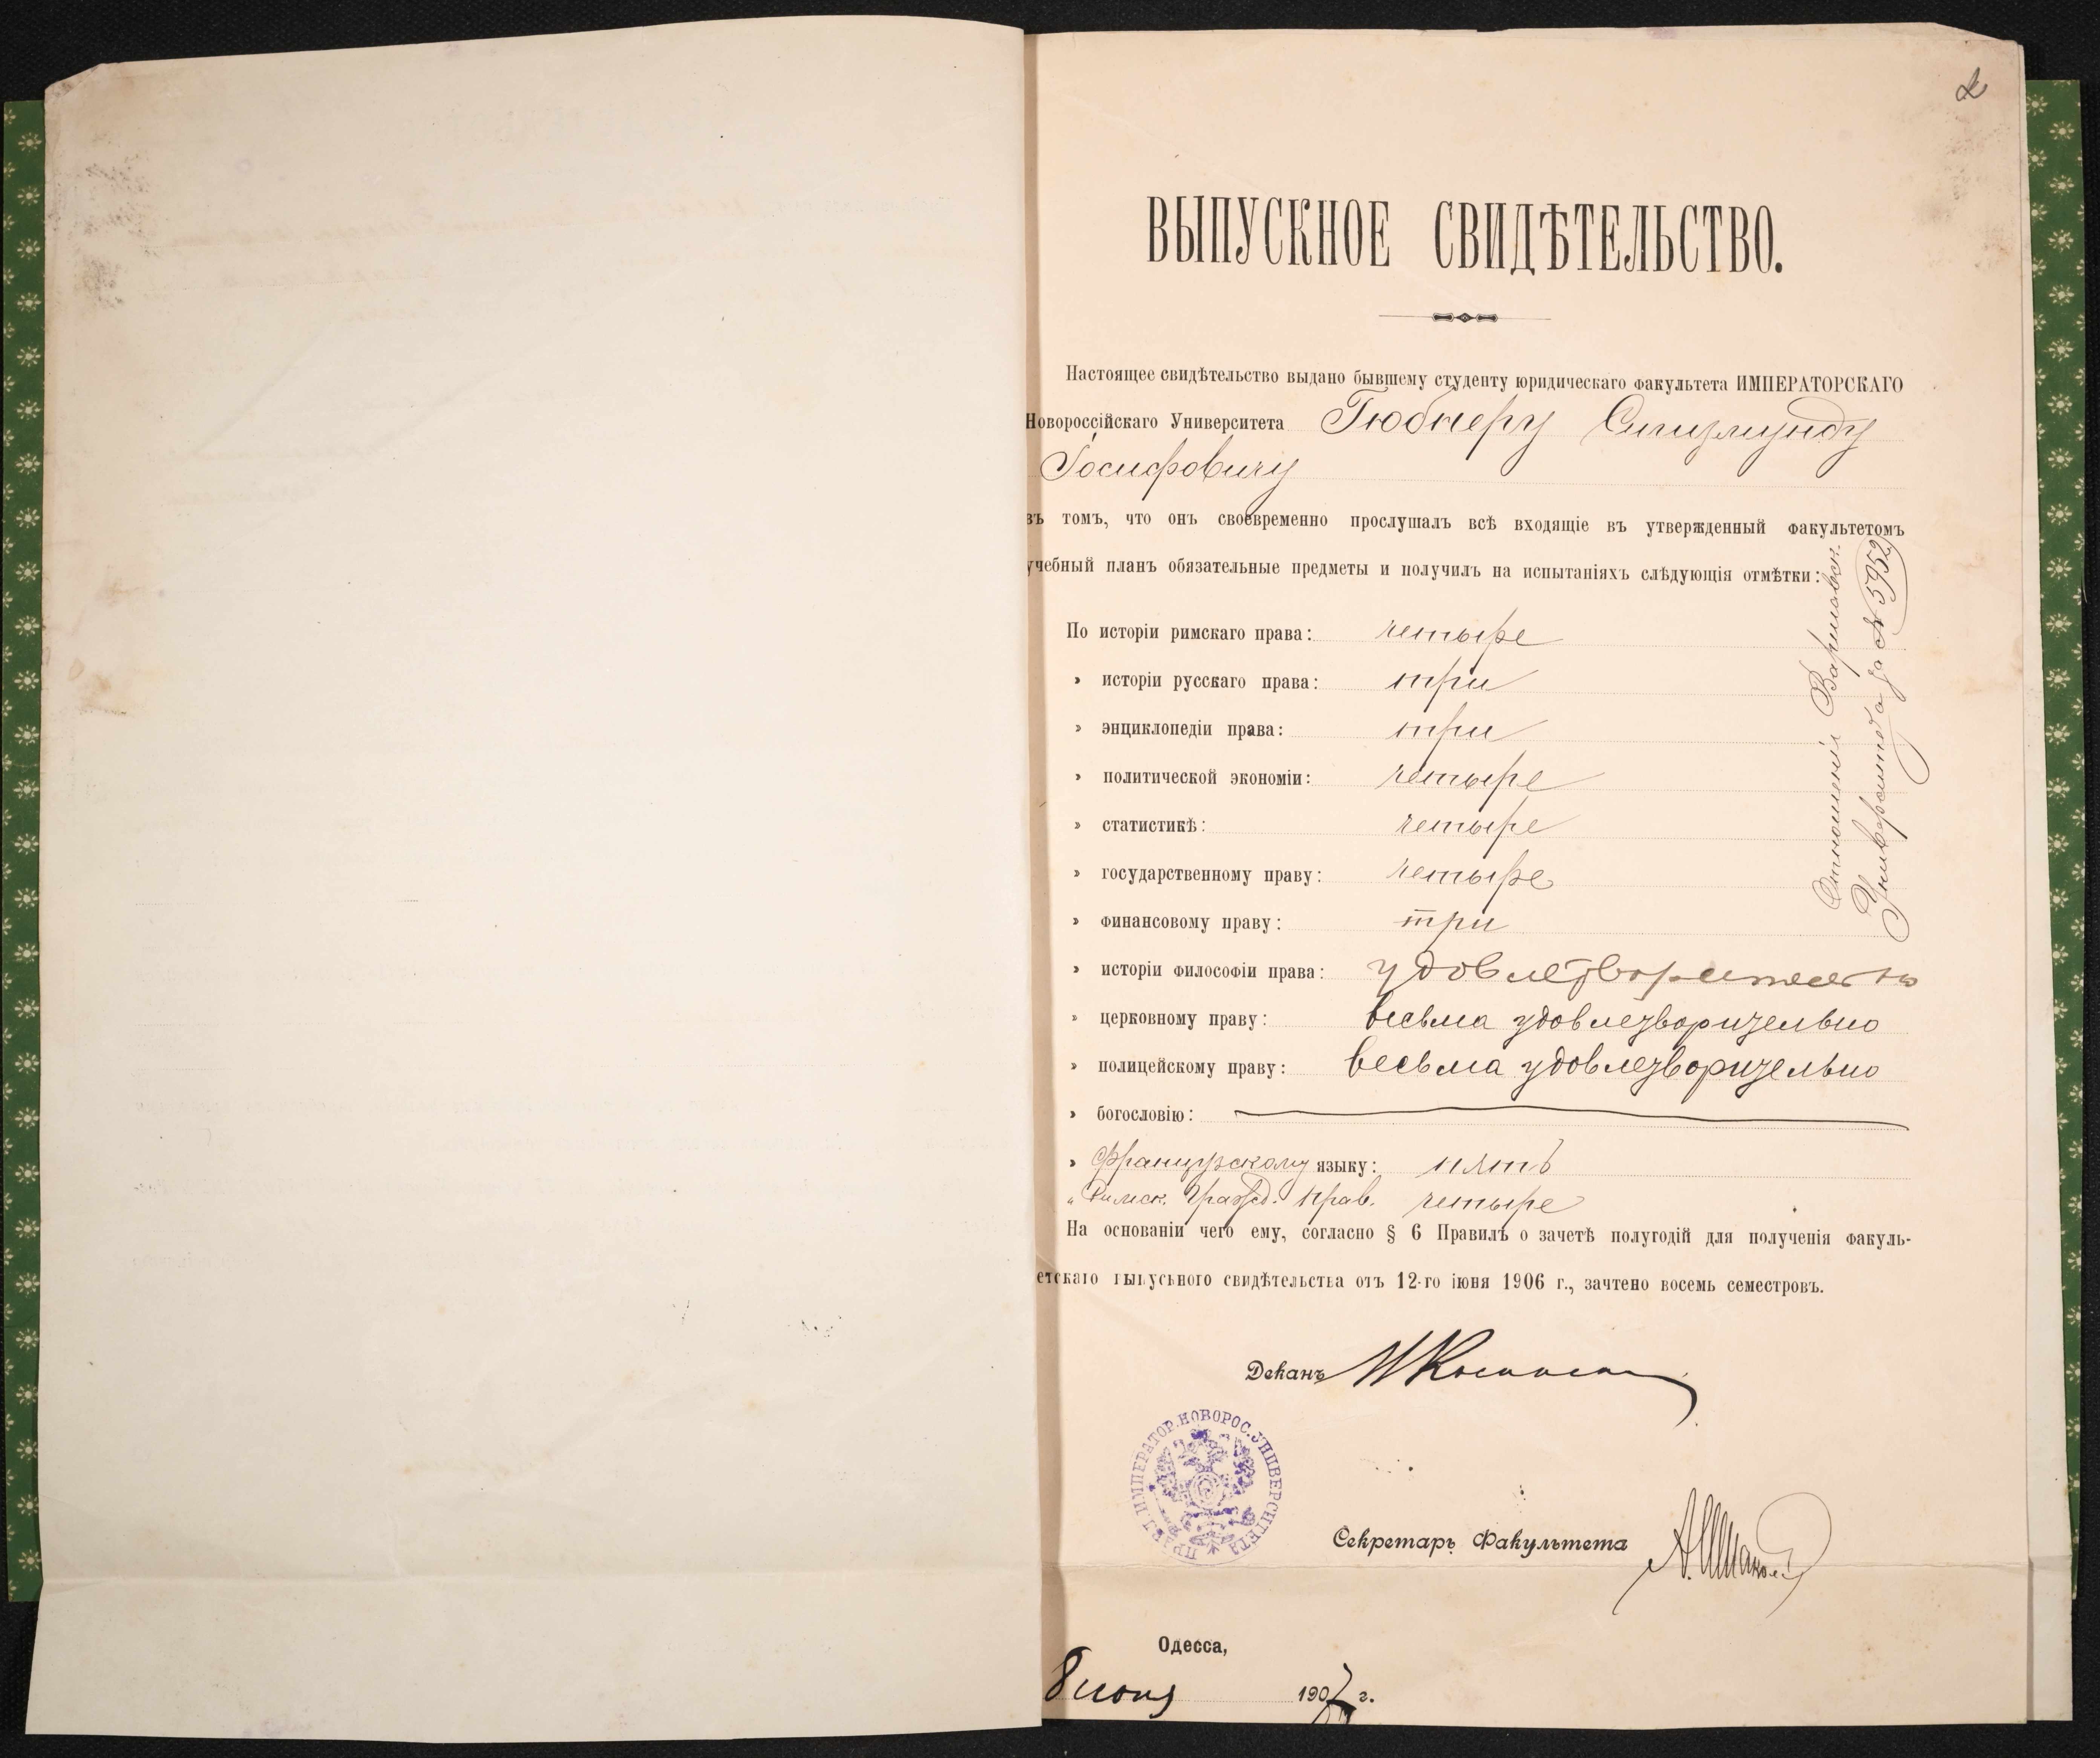 2
ВЫПУСКНОЕ СВИДѢТЕЛЬСТВО.
Настоящее свидѣтельство выдано бывшему студенту юридическаго факультета ИМПЕРАТОРСКАГО
Новороссійскаго Университета Гюбнеру Сигизмунду
Іосифовичу
въ томъ, что онъ своевременно прослушалъ всѣ входящіе въ утвержденный факультетомъ
учебный планъ обязательные предметы и получилъ на испытаніяхъ слѣдующія отмѣтки:
По исторіи римскаго права: четыре
» исторіи русскаго права: три
» энциклопедіи права: три
» политической экономіи: четыре
» статистикѣ: четыре
» государственному праву: четыре
» финансовому праву: три
» исторіи философіи права: удовлетворительно
» церковному праву: весьма удовлетворительно
» полицейскому праву: весьма удовлетворительно
» богословію:
» Французскому языку: пять
" Римск. Гражд. прав. четыре
На основаніи чего ему, согласно § 6 Правилъ о зачетѣ полугодій для полученія факуль-
етскаго выпускного свидѣтельства отъ 12-го іюня 1906 г., зачтено восемь семестровъ.
Отношенія Варшавск.
Университета за № 5952
Деканъ
ПРАВЛ. ИМПЕРАТОР. НОВОРОС. УНИВЕРСИТЕТА
Секретарь Факультета
Одесса,
8 июня 1907 г.